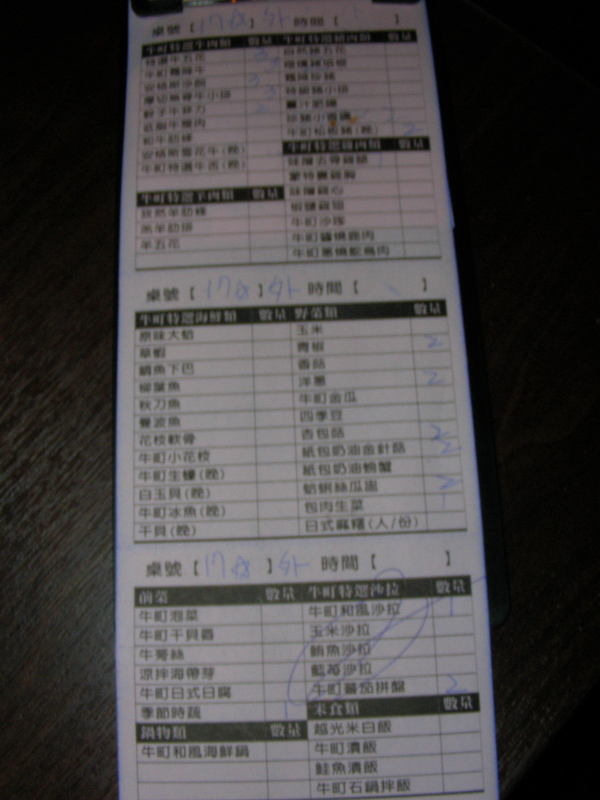 桌號【 】外 時間【 】
牛町特選牛肉類 數量 牛町特選豬肉類 數量
特選牛五花 3 自然豬五花
安格斯沙朗 3
厚切無骨牛小排 3 特級豬小排
骰子牛菲力 2 薑汁肥豬
低脂牛瘦肉
和牛肋條 牛町松板豬(晚) 2
安格斯雪花牛(晚) 牛町特選雞肉類 數量
牛町特選牛舌(晚) 味噌去骨雞腿 1
牛町特選羊肉類 數量 味噌雞心
羔羊肋排 牛町沙隊
羊五花 牛町醬燒鹿肉
牛町蔥燒鴕鳥肉
桌號【 】外 時間【 】
牛町特選海鮮類 數量 野菜類 數量
原味大蛤 玉米
草蝦 青椒 2
鯛魚下巴 香菇
柳葉魚 洋蔥 2
秋刀魚 牛町金瓜
曼波魚 四季豆
花枝軟骨 杏包菇 2
牛町小花枝 紙包奶油金針菇 2
牛町生蠔(晚) 紙包奶油螃蟹
白玉貝(晚) 蛤蜊絲瓜盅 2
牛町冰魚(晚) 包肉生菜 1
干貝(晚) 日式麻糬(人/份)
桌號【 】外 時間【 】
前菜 數量 牛町特選沙拉 數量
牛町泡菜 牛町和風沙拉 1
牛町干貝唇 玉米沙拉
牛蒡絲 鮪魚沙拉
涼拌海帶芽 藍莓沙拉
牛町日式豆腐 牛町蕃茄拼盤 2
季節時蔬 1 米食類 數量
鍋物類 數量 越光米白飯
牛町和風海鮮鍋 牛町漬飯
鮭魚漬飯
牛町石鍋拌飯